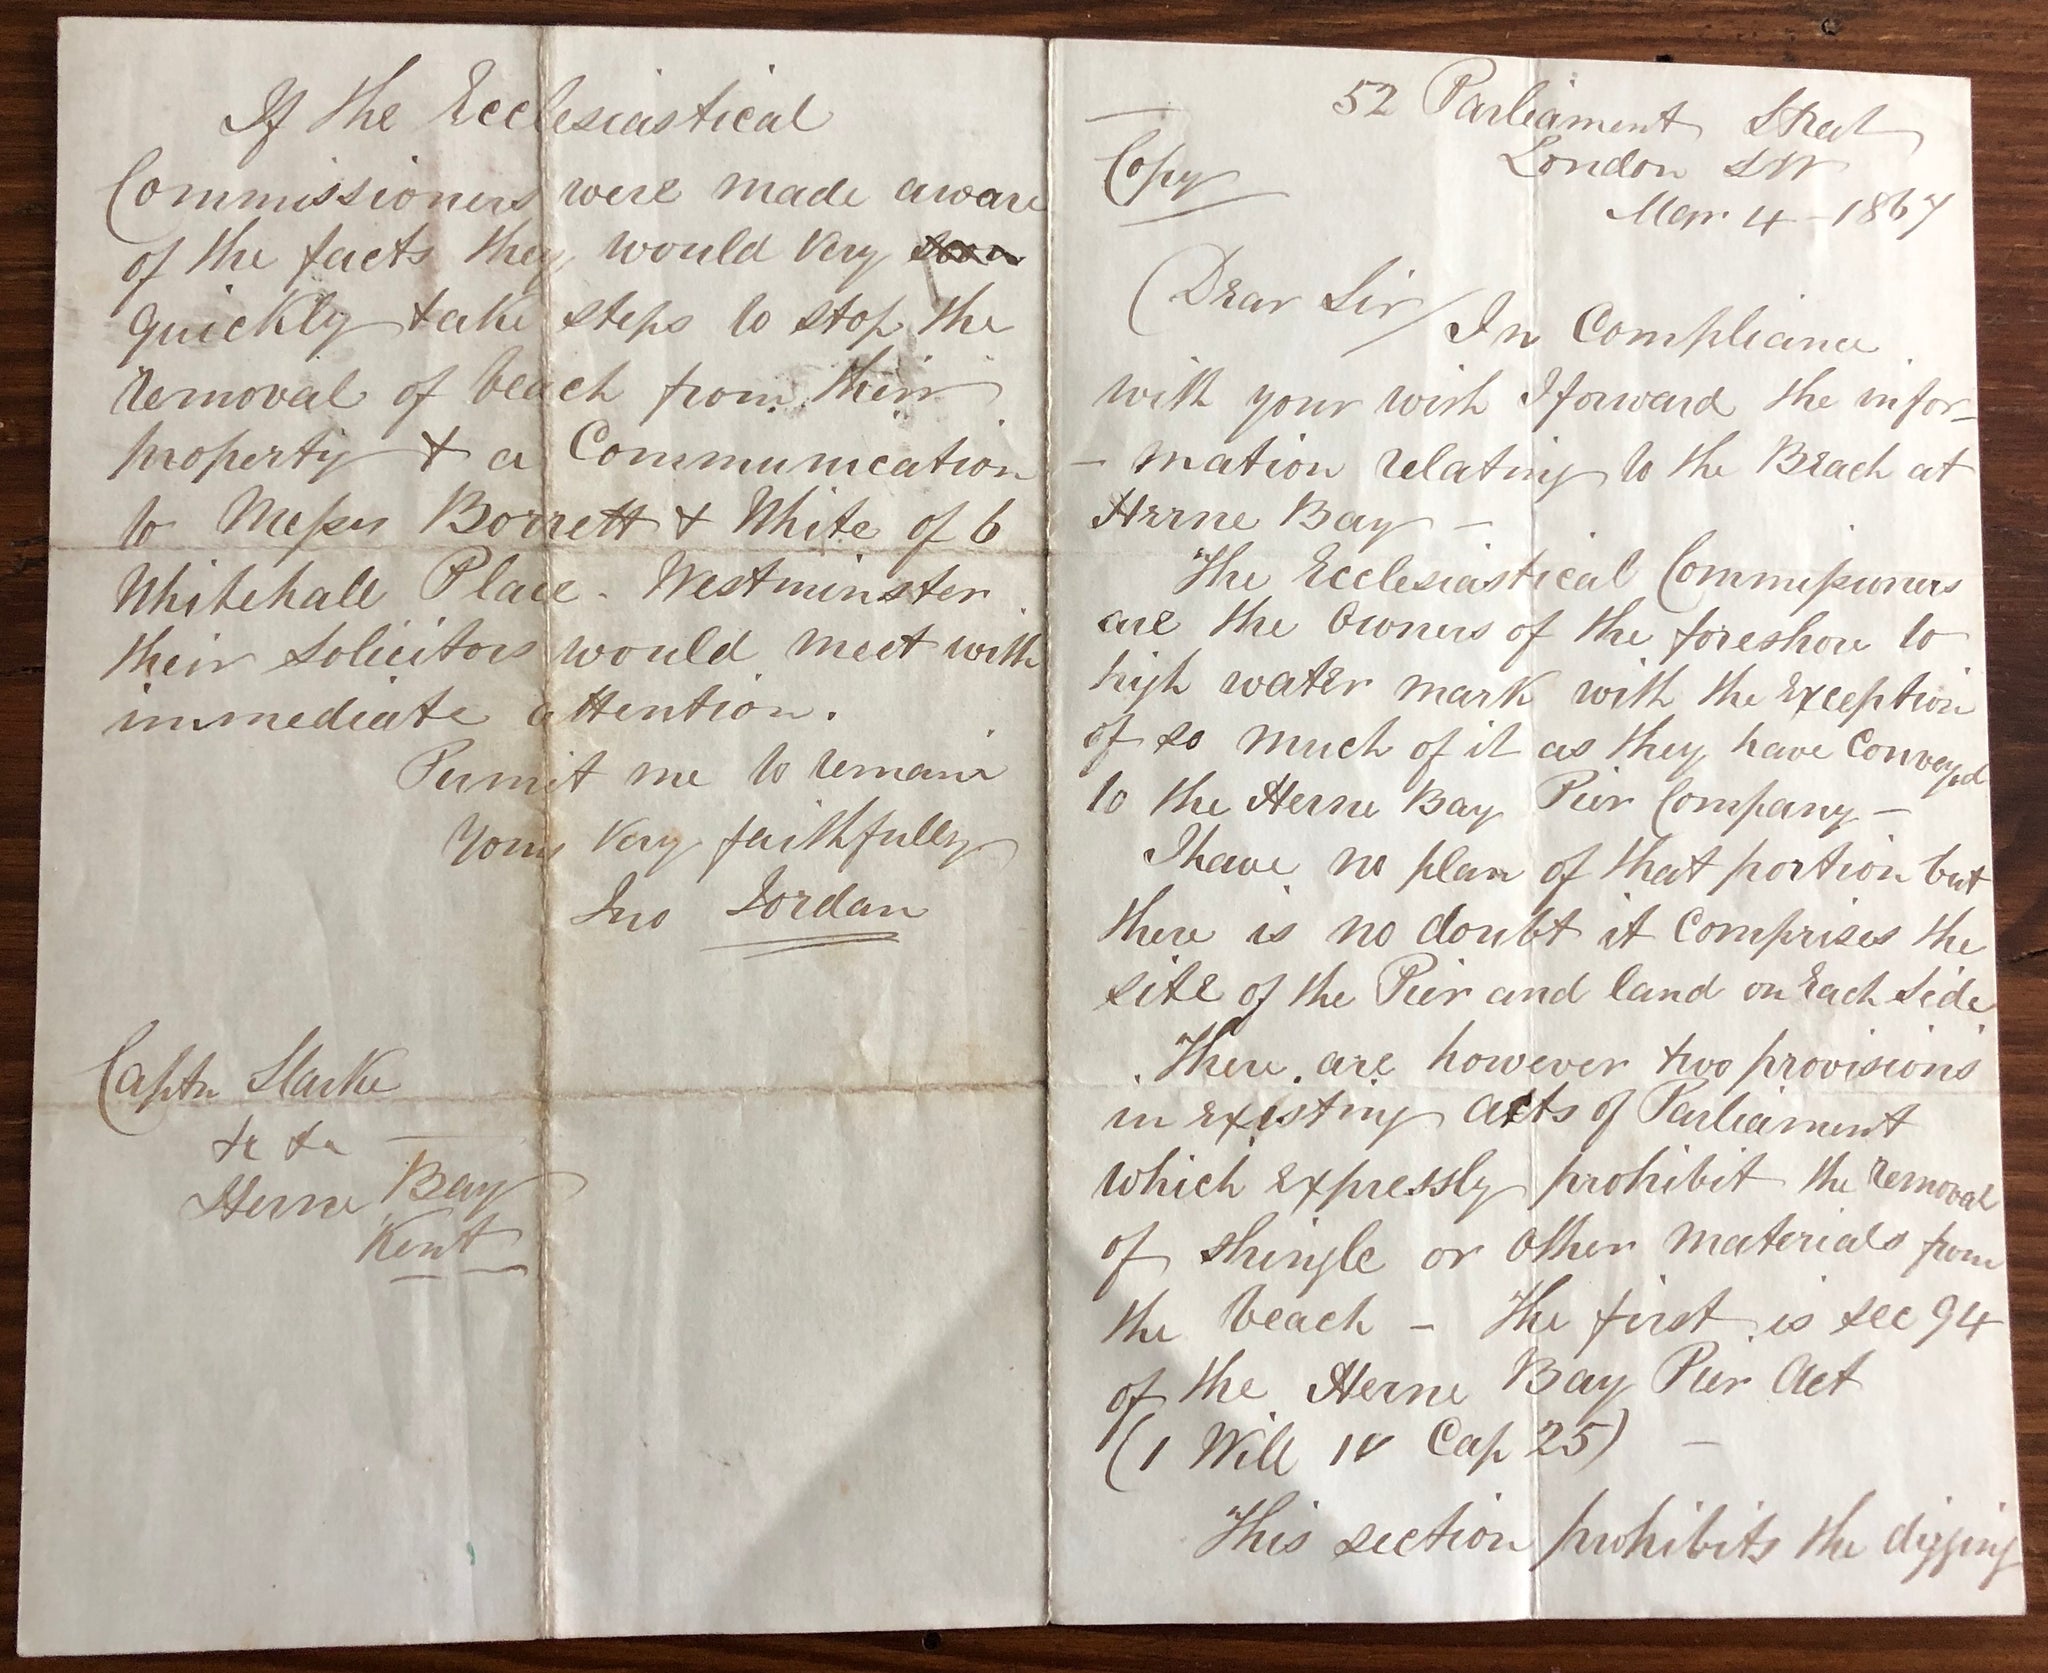 52 Parliament Street
London SW
Copy
Mar 4 - 1867
Dear Sir / In Compliance
with your wish I forward the infor-
- mation relating to the Beach at
Herne Bay -
The Ecclesiastical Commissioners
are the owners of the foreshore to
high water mark with the exception
of so much of it as they have Conveyed
to the Herne Bay Pier Company -
I have no plan of that portion but
there is no doubt it comprises the
site of the Pier and land on Each Side.
There are however two provisions
in existing acts of Parliament
which expressly prohibit the removal
of shingle or other materials from
the beach - The first is sec 94
of the Herne Bay Pier Act
(1 Will IV Cap 25) -
This section prohibits the digging
If the Ecclesiastical
Commissioners were made aware
of the facts they would very soon
quickly take steps to stop the
removal of beach from their
property & a Communication
to Messrs Borrett & White of 6
Whitehall Place - Westminster
their Solicitors would meet with
immediate attention.
Permit me to remain
Yours very faithfully
Jno Jordan
Captn Slarke
&c &c
Herne Bay
Kent